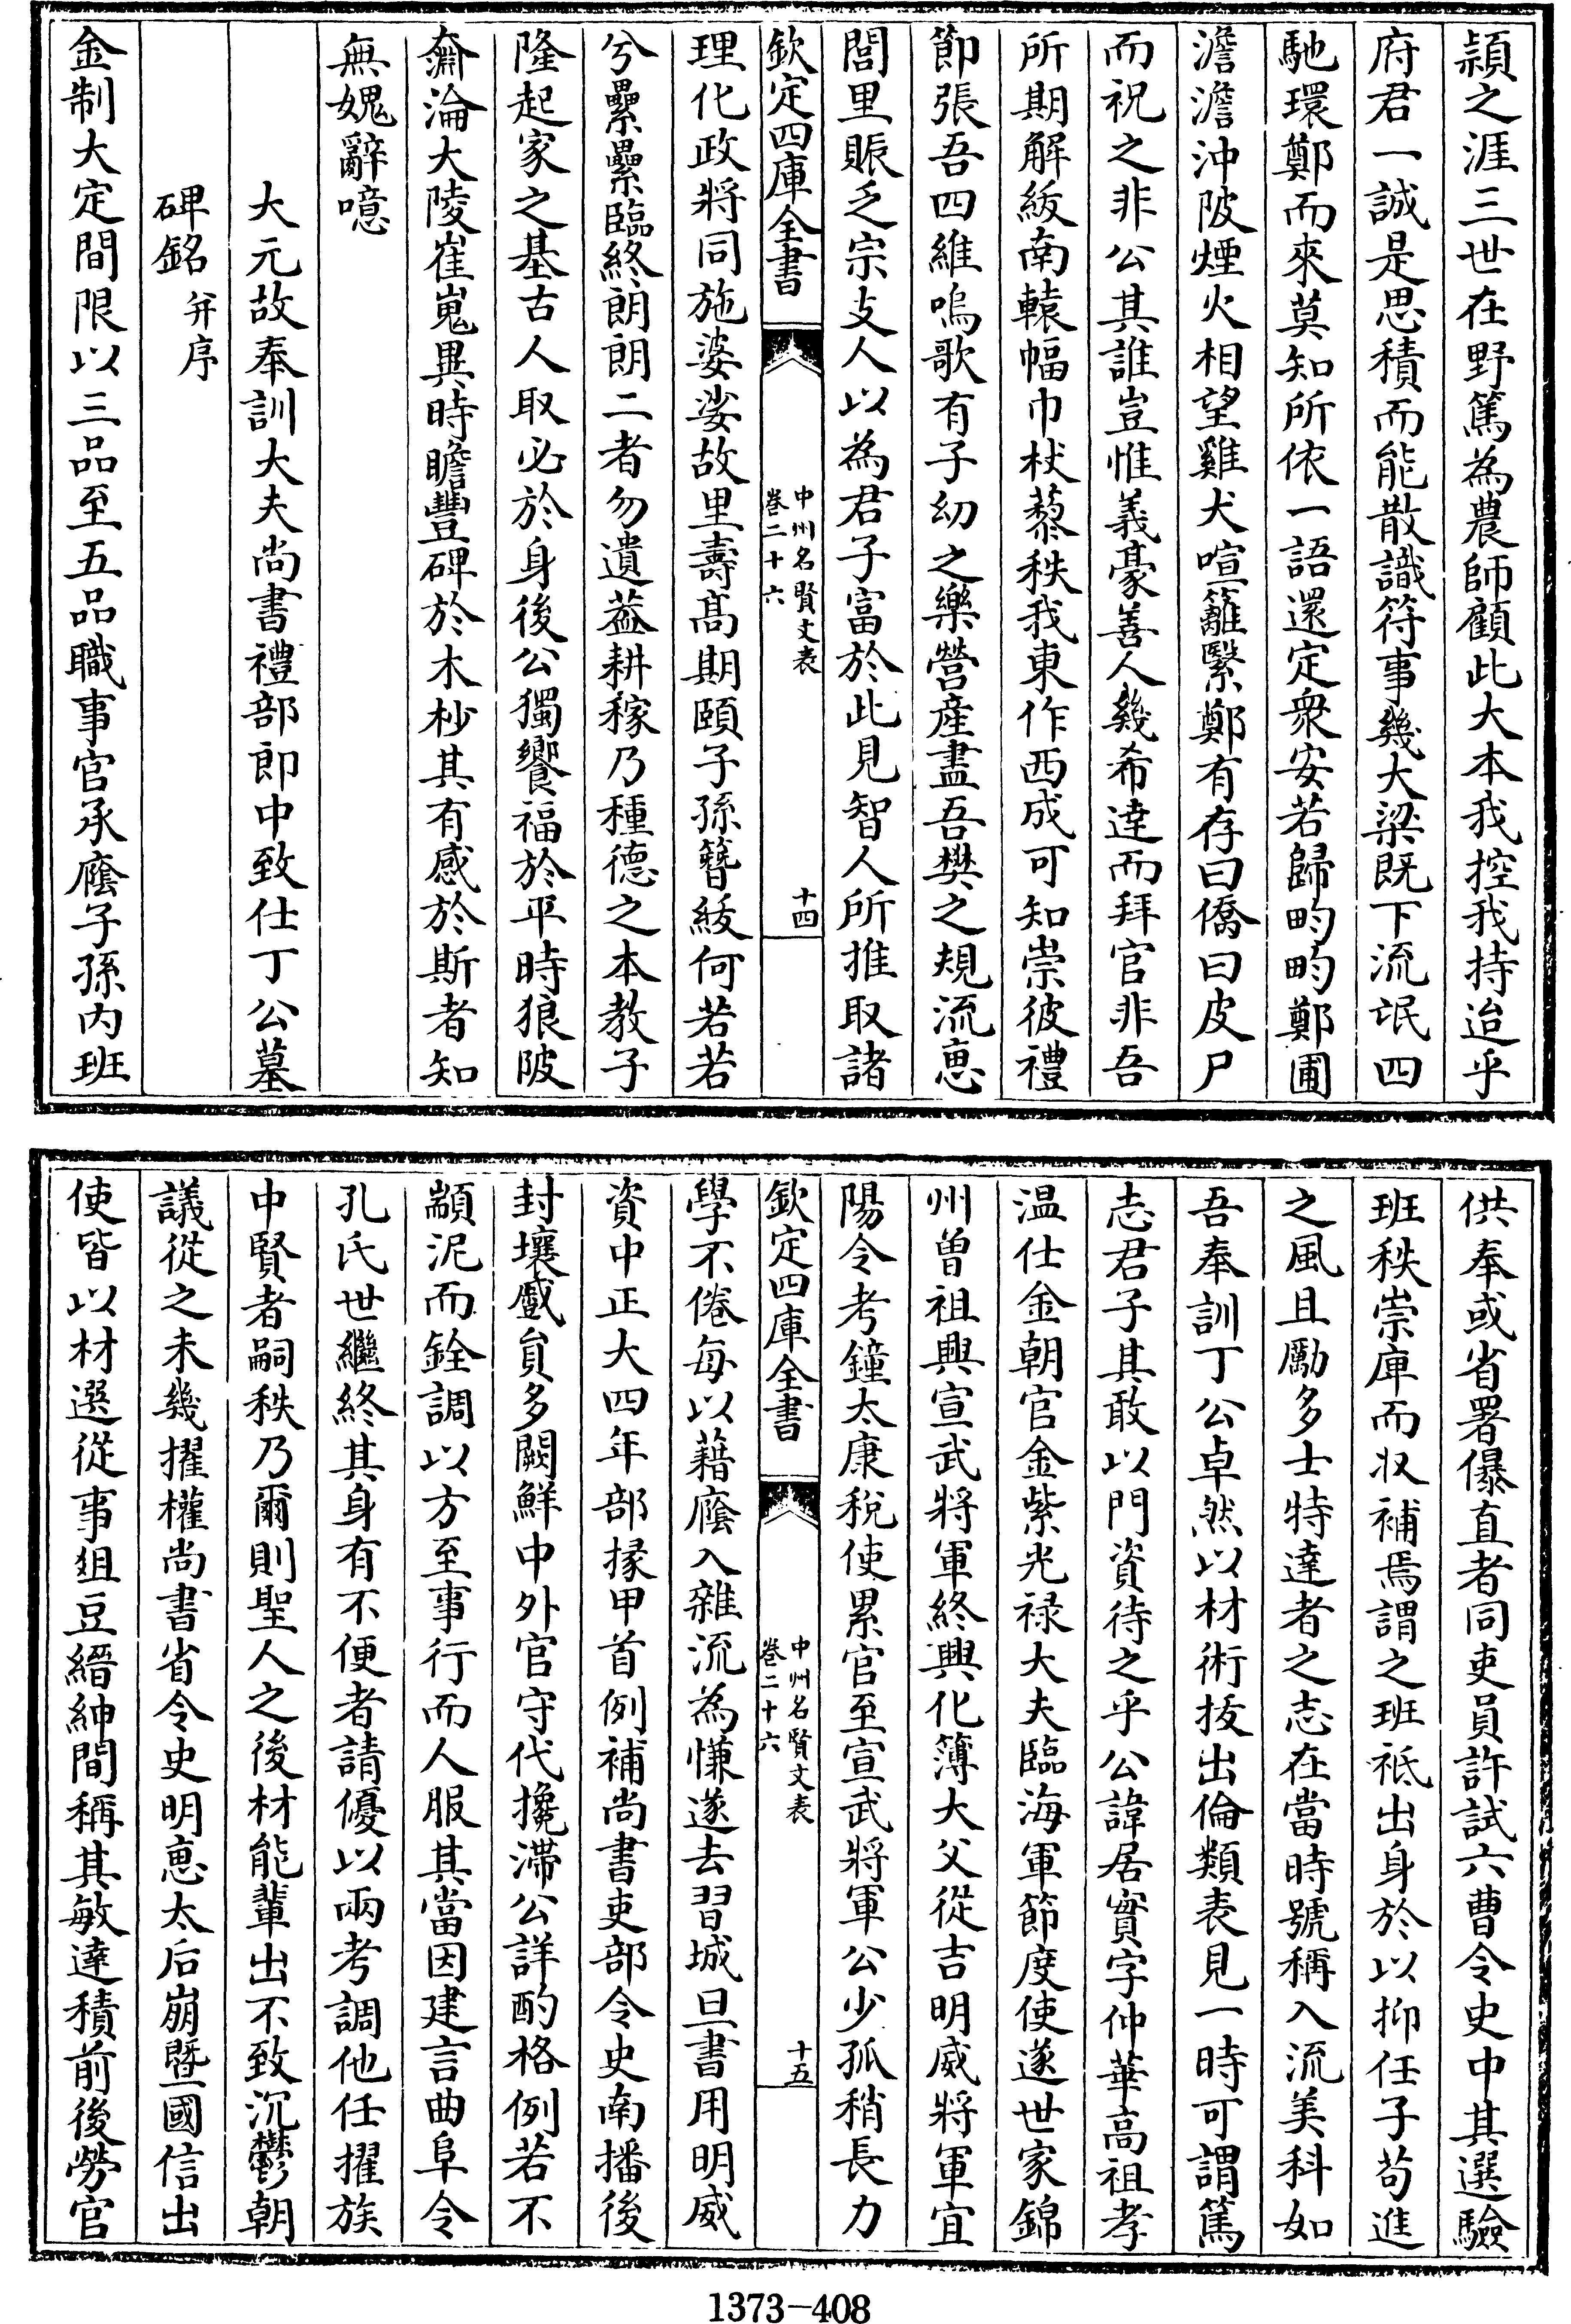 潁之涯三世在野篤為農師顧此大本我控我持迨乎
府君一誠是思積而能散識符事幾大梁既下流氓四
馳環鄭而來莫知所依一語還定衆安若歸畇畇鄭圃
澹澹沖陂煙火相望雞犬喧籬繄鄭有存曰僑曰皮尸
而祝之非公其誰豈惟義豪善人幾希達而拜官非吾
所期解紱南轅幅巾杖藜秩我東作西成可知崇彼禮
節張吾四維嗚歌有子幼之樂營產盡吾樊之規流惠
閭里賑乏宗支人以為君子富於此見智人所推取諸
欽定四庫全書
中州名賢文表
卷二十六
十四
理化政將同施婆娑故里壽髙期頤子孫簪紱何若若
兮纍纍臨終朗朗二者勿遺葢耕稼乃種德之本教子
隆起家之基古人取必於身後公獨饗福於平時狼陂
齋淪大陵崔嵬異時瞻豐碑於木杪其有感於斯者知
無媿辭噫
大元故奉訓大夫尚書禮部郎中致仕丁公墓
碑銘并序
金制大定間限以三品至五品職事官承廕子孫内班
供奉或省署儤直者同吏員許試六曹令史中其選驗
班秩崇庳而收補焉謂之班祗出身於以抑任子苟進
之風且勵多士特達者之志在當時號稱入流美科如
吾奉訓丁公卓然以材術拔出倫類表見一時可謂篤
志君子其敢以門資待之乎公諱居實字仲華高祖孝
温仕金朝官金紫光禄大夫臨海軍節度使遂世家錦
州曾祖興宣武將軍終興化簿大父從吉明威將軍宜
陽令考鐘太康稅使累官至宣武將軍公少孤稍長力
欽定四庫全書
中州名賢文表
卷二十六
十五
學不倦每以藉廕入雜流為慊遂去習城旦書用明威
資中正大四年部掾甲首例補尚書吏部令史南播後
封壤蹙貟多闕鮮中外官守代攙滯公詳酌格例若不
顓泥而銓調以方至事行而人服其當因建言曲阜令
孔氏世繼終其身有不便者請優以兩考調他任擢族
中賢者嗣秩乃爾則聖人之後材能輩出不致沉鬱朝
議從之未幾擢權尚書省令史明惠太后崩暨國信出
使皆以材選從事俎豆縉紳間稱其敏達積前後勞官
1373-408